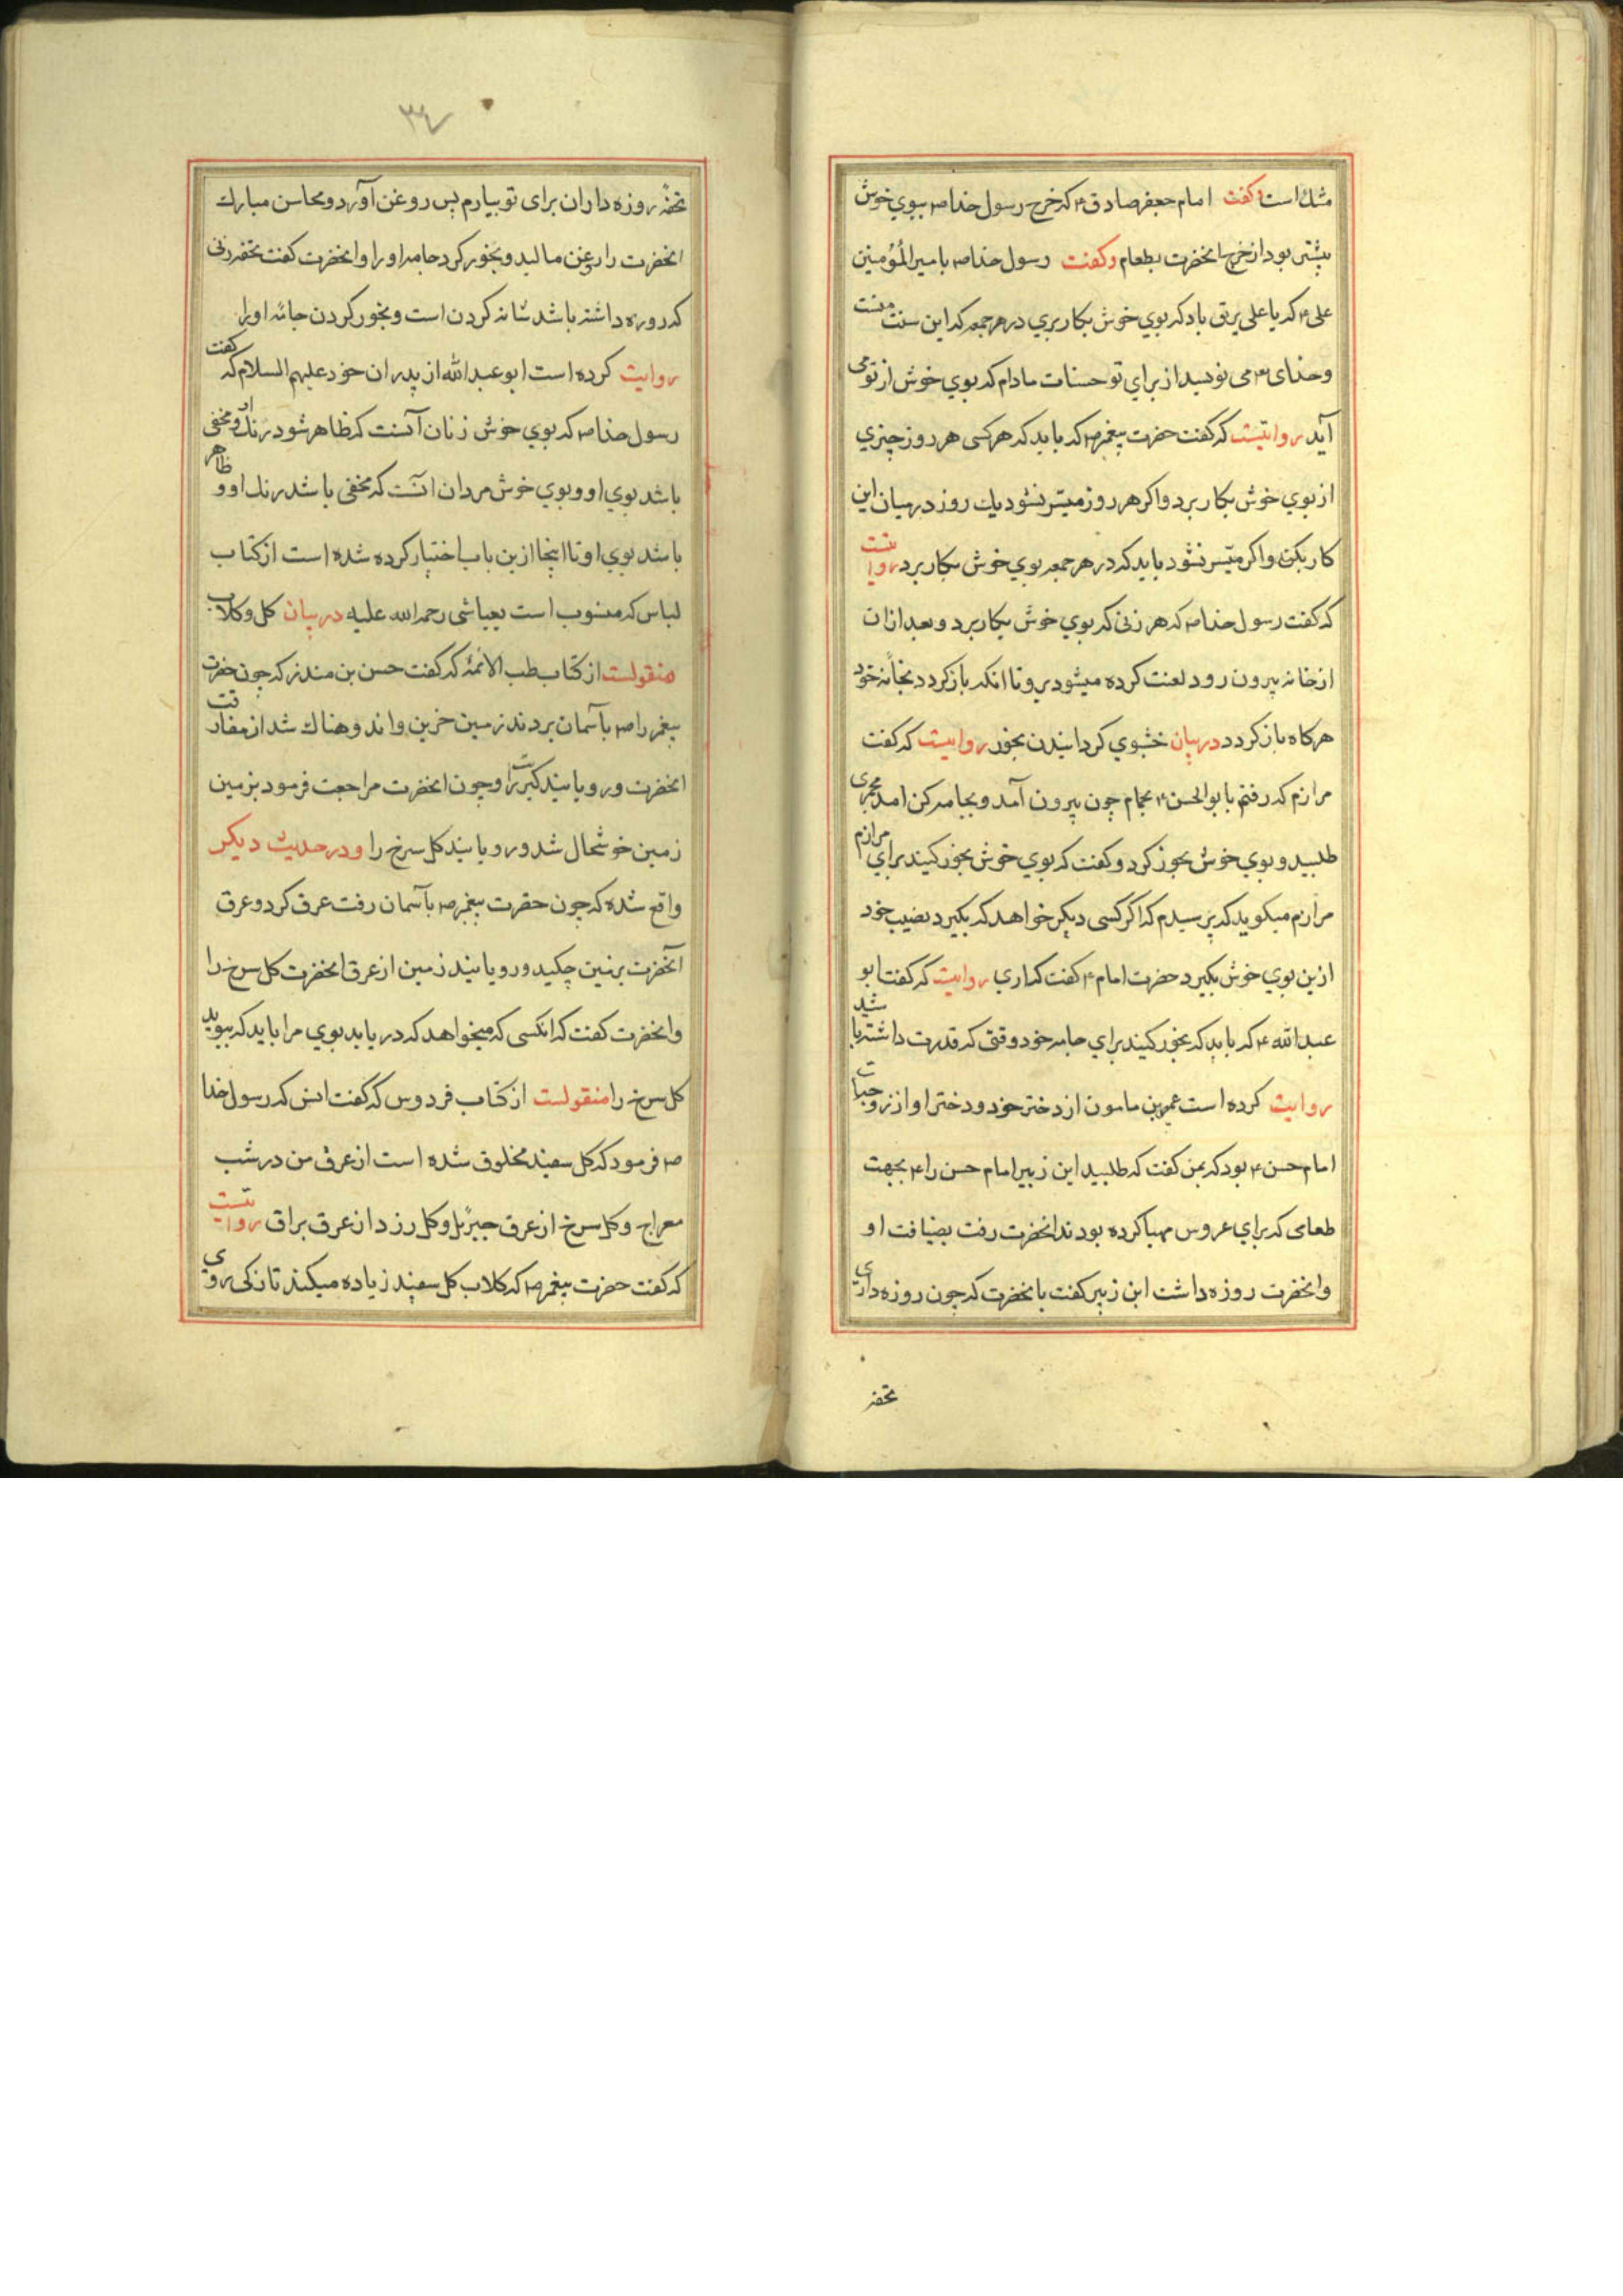 مشك است وكفت امام جعفر صادق ع كه خرج رسول خدا ص ببوي خوش
بيشتر بود از خرج انحضرت بطعام وكفت رسول خدا ص با مير المؤمنين
على ع كه يا على بر تو باد كه بوي خوش بكار بري در هر جمعه كه اين سنت منست
وخداى تع مى نويسد از براي تو حسنات مادام كه بوي خوش از تو مى
آيد روايتست كه كفت حضرت پيغمبر ص كه بايد كه هر كسى هر روز چيزي
از بوي خوش بكار برد واكر هر روز ميسر نشود يك روز در ميان اين
كار بكند واكر ميسر نشود بايد كه در هر جمعه بوي خوش بكار برد روايتست
كه كفت رسول خدا ص كه هر زنى كه بوي خوش بكار برد وبعد از ان
از خانه بيرون رود لعنت كرده ميشود برو تا انكه باز كردد بخانهٔ خود
هر كاه باز كردد در بيان خشبوي كردانيدن بخور روايتست كه كفت
مرازم كه رفتم با بو الحسن ع بحمام چون بيرون آمد وبجامه كن امد مجمرى
طلبيد وبوي خوش بخور كرد وكفت كه بوي خوش بخور كنيد براي مرازم
مرازم ميكويد كه پرسيدم كه اكر كسى ديكر خواهد كه بكيرد نصيب خود
ازين بوي خوش بكيرد حضرت امام ع كفت كه اري روايتست كه كفت ابو
عبد الله ع كه بايد كه بخور كنيد براي جامه خود وقتى كه قدرت داشته باشيد
روايت كرده است عمير بن مامون از دختر خود ودختر او از زوجات
امام حسن ع بود كه بمن كفت كه طلبيد ابن زبير امام حسن را ع بجهت
طعامى كه براي عروس مهيا كرده بودند انحضرت رفت بضيافت او
وانحضرت روزه داشت ابن زبير كفت با نحضرت كه چون روزه دارى
تحفه
٣٧
تحفهٔ روزه داران براى تو بيارم پس روغن آورد ومحاسن مبارك
انحضرت را روغن ماليد وبخور كرد جامه او را وانحضرت كفت تحفه زنى
كه روزه داشته باشد شانه كردن است وبخور كردن جامهٔ او را
روايت كرده است ابو عبد الله از پدران خود عليهم السلام كه كفت
رسول خدا ص كه بوي خوش زنان آنست كه ظاهر شود رنك او ومخفى
باشد بوي او وبوي خوش مردان انست كه مخفى باشد رنك او وظاهر
باشد بوي او تا اينجا ازين باب اختيار كرده شده است از كتاب
لباس كه منسوب است بعياشى رحمه الله عليه در بيان كل وكلاب
منقولست از كتاب طب الائمهٔ كه كفت حسن بن منذر كه چون حضرت
پيغمبر را ص بآسمان بردند زمين حزين واندوهناك شد از مفارقت
انحضرت ورويانيد كبر را وچون انحضرت مراجعت فرمود بزمين
زمين خوشحال شد ورويانيد كل سرخ را ودر حديث ديكر
واقع شده كه چون حضرت پيغمبر ص بآسمان رفت عرق كرد وعرق
آنحضرت برزمين چكيد ورويانيد زمين از عرق انحضرت كل سرخ را
وانحضرت كفت كه انكسى كه ميخواهد كه دريابد بوي مرا بايد كه ببويد
كل سرخ را منقولست از كتاب فردوس كه كفت انس كه رسول خدا
ص فرمود كه كل سفيد مخلوق شده است از عرق من در شب
معراج وكل سرخ از عرق جبرئيل وكل زرد از عرق براق روايتست
كه كفت حضرت پيغمبر ص كه كلاب كل سفيد زياده ميكند تازكى روى